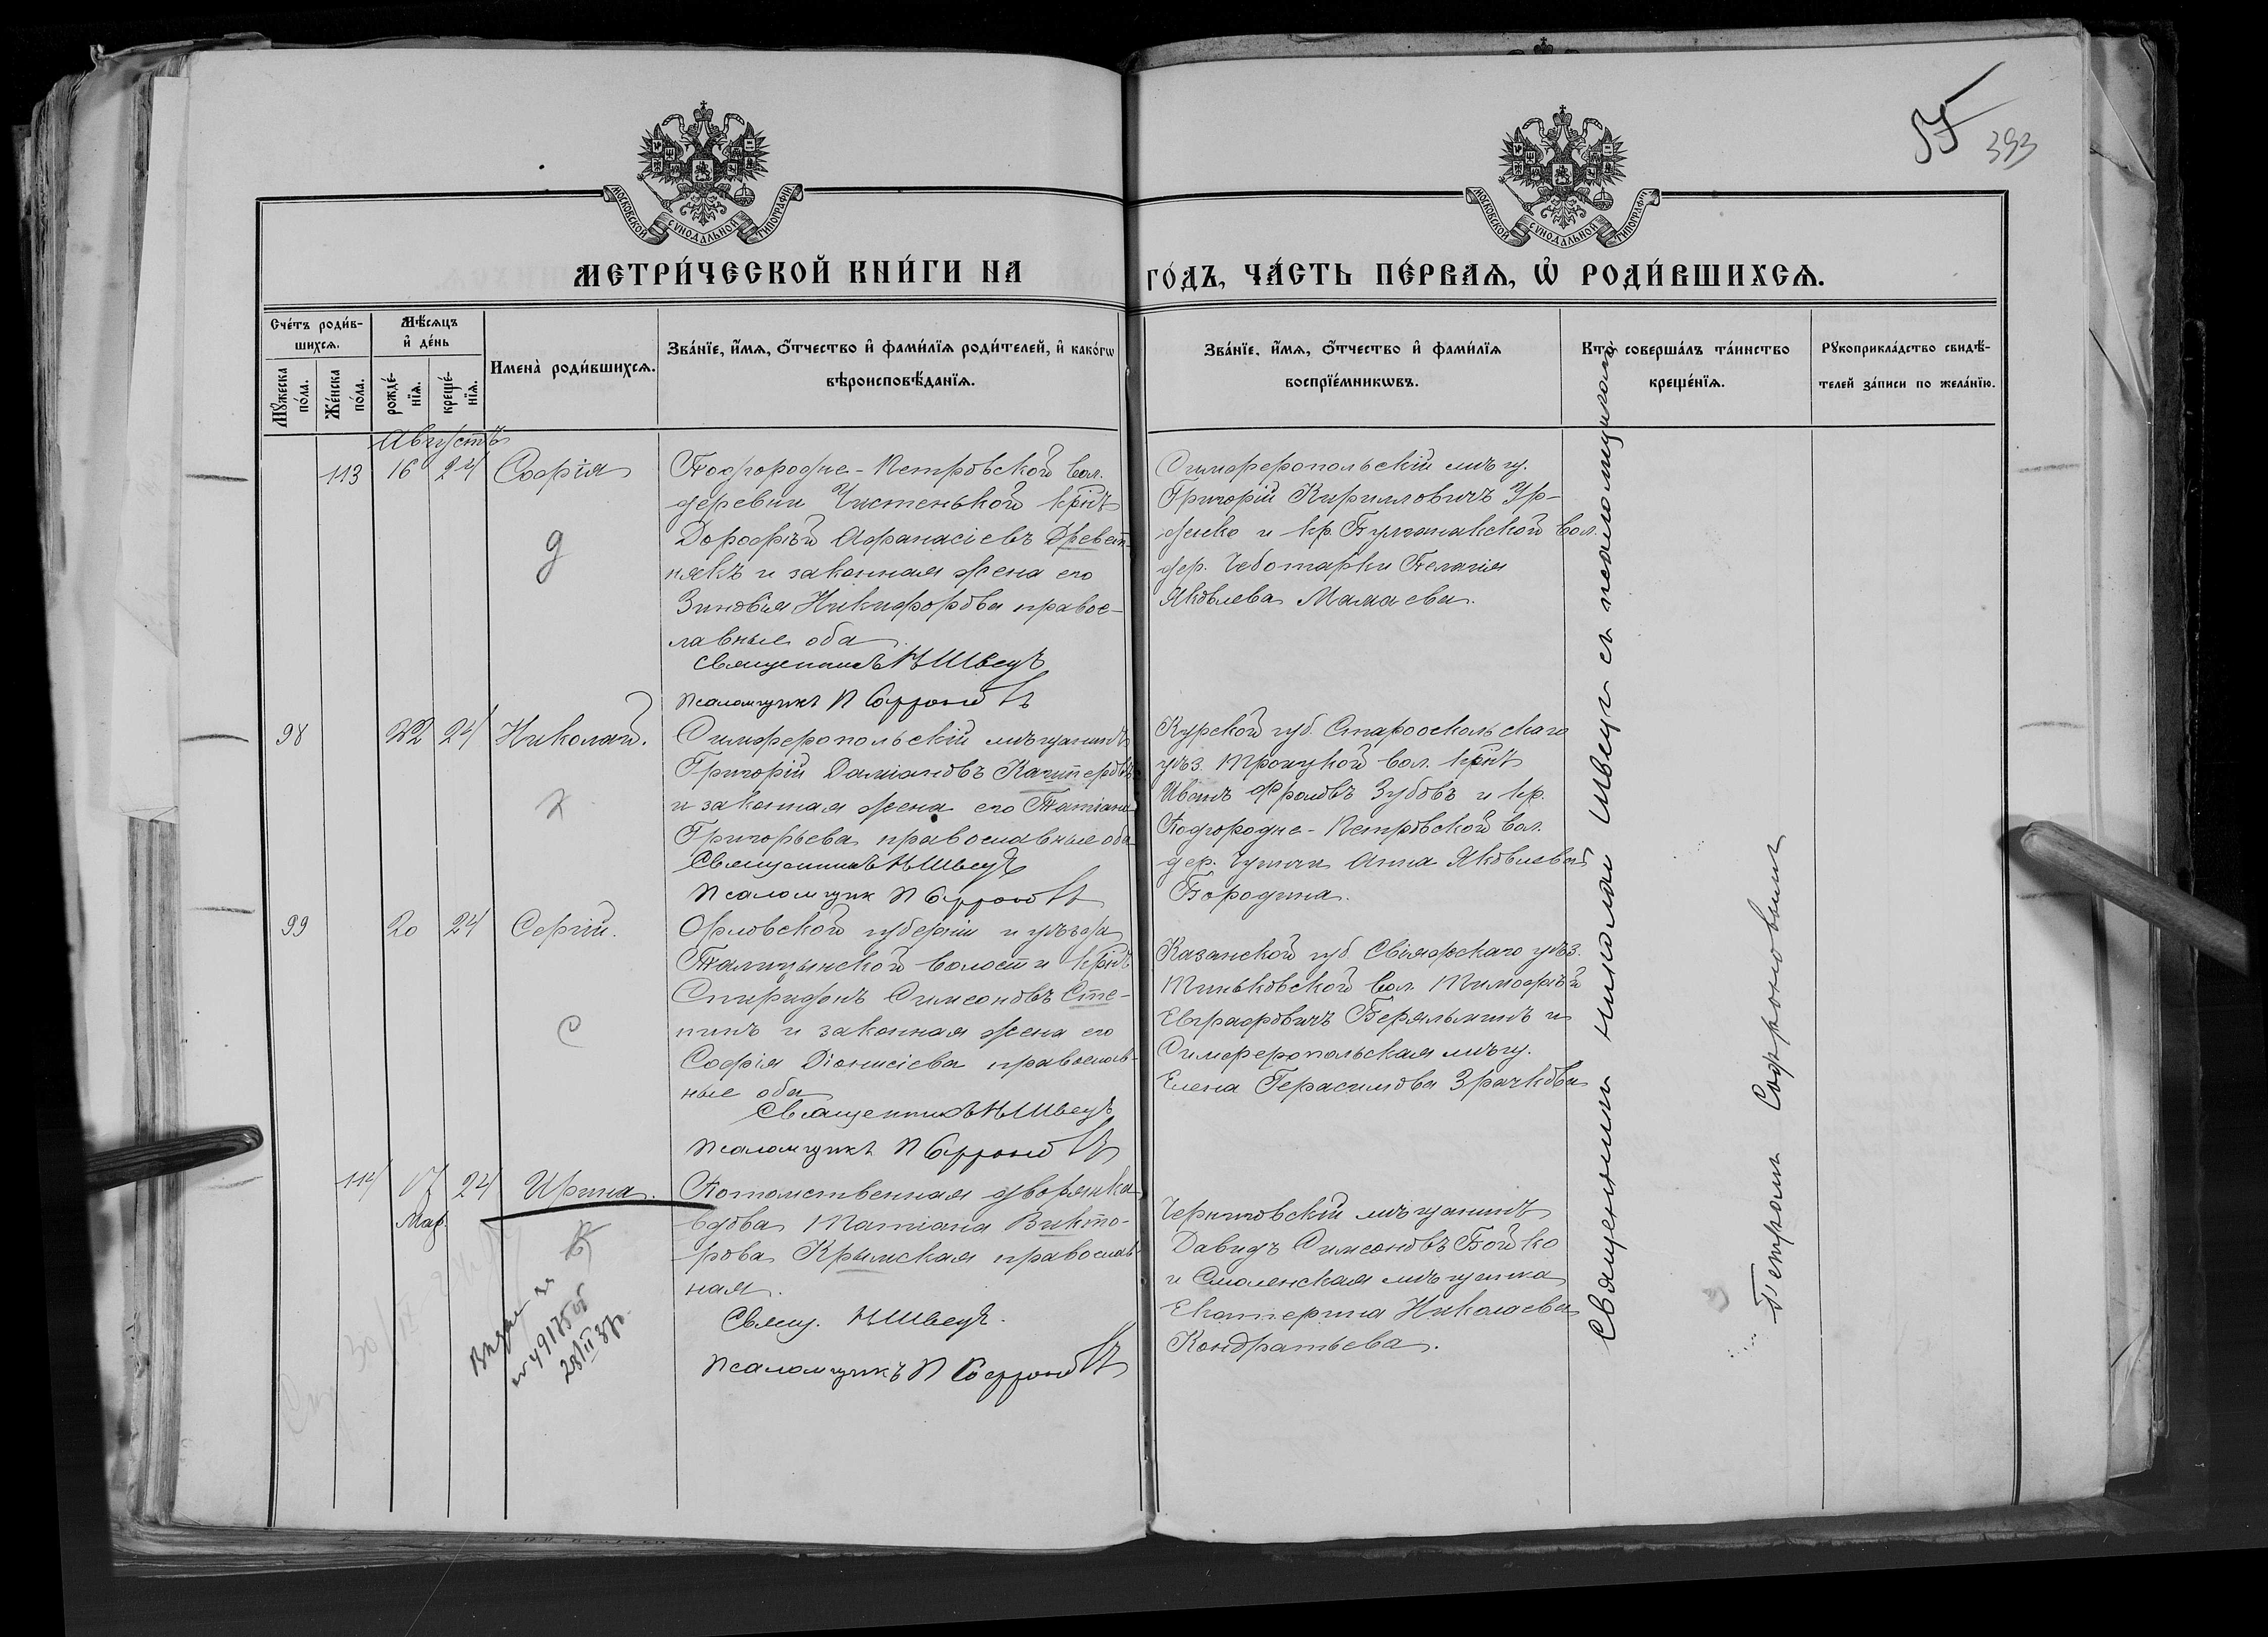 57
393
МОСКОВСКОЙ СѴНОДАЛЬНОЙ ТИПОГРАФІИ
МОСКОВСКОЙ СѴНОДАЛЬНОЙ ТИПОГРАФІИ
МЕТРИ́ЧЕСКОЙ КНИ́ГИ НА
ГО́ДЪ, ЧА́СТЬ ПЕ́РВАѦ, Ѡ҆ РОДИ́ВШИХСѦ.
Сче́тъ роди́в-
шихсѧ.
Мꙋ́жеска по́ла.
Же́нска по́ла.
Мѣ́сѧцъ и҆ де́нь
рожде́-
нїѧ.
креще́-
нїѧ.
Имена̀ роди́вшихсѧ.
Зва́нїе, и҆́мѧ, ѻ҆́тчество и҆ фами́лїѧ роди́телей, и҆ како́гѡ
вѣроисповѣ́данїѧ.
Зва́нїе, и҆́мѧ, ѻ҆́тчество и҆ фами́лїѧ
воспрїе́мникѡвъ.
Кто̀ соверша́лъ та́инство
креще́нїѧ.
Рꙋкоприкла́дство свидѣ́-
телей за́писи по жела́нїю.
Августъ
113 16 24 Софія
Подгородне-Петровской вол.
деревни Чистенькой кр-нъ
Дорофѣй Афанасіевъ Древет-
някъ и законная жена его
Зиновія Никифорова правос-
лавные оба
Священникъ Н Швецъ
Псаломщикъ П Софроновъ
д
Симферопольскій мѣщ.
Григорій Кирилловичъ Ур-
денко и кр. Булганакской вол.
дер. Чеботарки Пелагія
Яковлева Мамаева.
98 22 24 Николай.
Симферопольскій мѣщанинъ
Григорій Даміановъ
и законная жена его Татіана
Григорьева православные оба
Священникъ Н Швецъ
Псаломщик П Софроновъ
Курской губ. Старооскольскаго
уѣз. Троицкой вол. кр-нъ
Иванъ Фроловъ Зубовъ и кр.
Подгородне-Петровской вол.
дер. Анна Яковлева
Бородина.
99 20 24 Сергій.
Орловской губерніи и уѣзда
волости кр-нъ
Спиридонъ Симеоновъ Сте-
пинъ и законная жена его
Софія Діонисіева православ-
ные оба
Священникъ Н Швецъ
Псаломщикъ П Софроновъ
с
Казанской губ. Свіяжскаго уѣз.
Тиньковской вол. Тимофѣй
Евграфовичъ и
Симферопольская мѣщ.
Елена Герасимова Зрачкова
114 17 24 Ирина.
Мар.
Потомственная дворянка
вдова Татіана Викто-
рова Крымская православ-
ная.
Свящ. Н Швецъ.
Псаломщикъ П Софроновъ
к
№ 49175
28/II 37г.
Черниговскій мѣщанинъ
Давидъ Симеоновъ Бойко
и Смоленская мѣщанка
Екатерина Николаева
Кондратьева.
Священникъ Николай Швецъ съ псаломщикомъ
Петромъ Софроновымъ